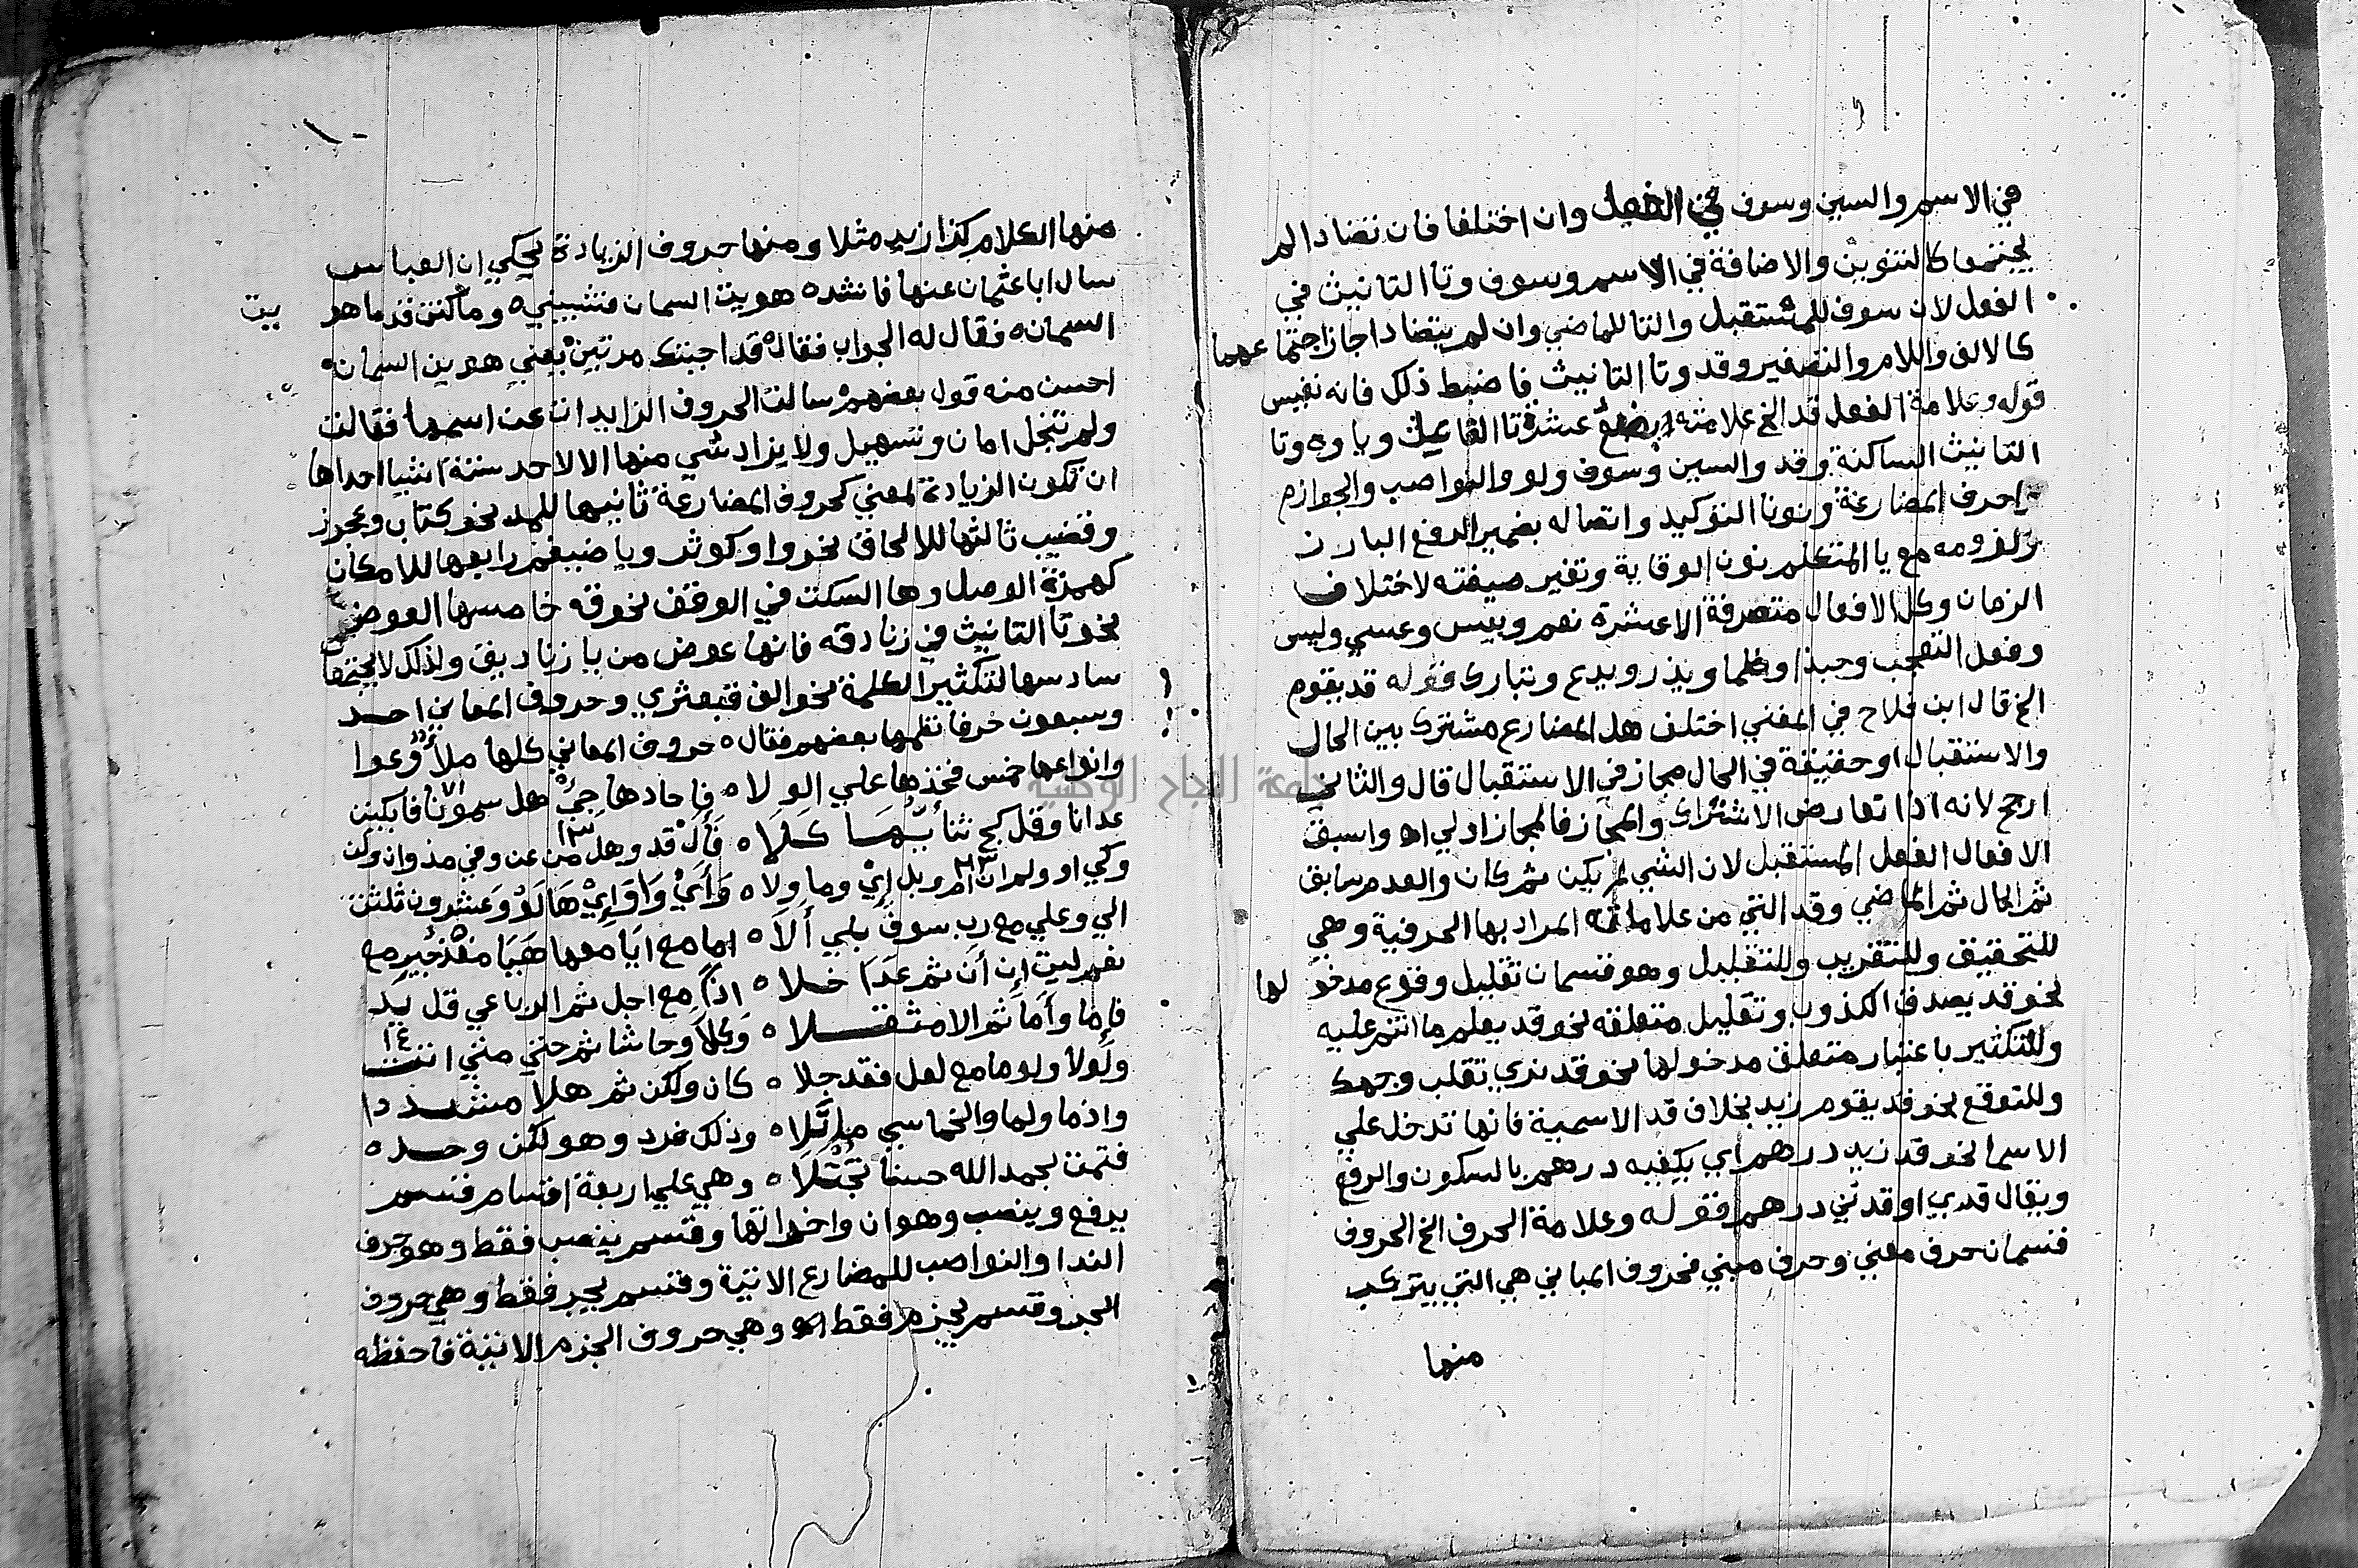 في الاسم والسين وسوف في الفعل وان اختلفا فان تضادا لم
يجتمعا كالتنوين والاضافة في الاسم وسوف وتا التانيث في
الفعل لان سوف للمستقبل والتا للماضي وان لم يتضادا جاز اجتماعهما
كالالف واللام والتصغير وقد وتا التانيث فاضبط ذلك فانه نفيس
قوله وعلامة الفعل قد الخ علامته بضع عشرة تا الفاعل وياوه وتا
التانيث الساكنة وقد والسين وسوف ولو والنواصب والجوازم
واحرف المضارعة ونونا التوكيد واتصاله بضمير الرفع البارز
ولزومه مع يا المتكلم نون الوقاية وتغير صيغته لاختلاف
الزمان وكل الافعال متصرفة الا عشرة نعم وبيس وعسي وليس
وفعل التعجب وحبذا وقلما ويذر ويدع وتبارك فقوله قد يقوم
الخ قال ابن فلاح في المغني اختلف هل المضارع مشترك بين الحال
والاستقبال او حقيقة في الحال مجاز في الاستقبال قال والثاني
ارجح لانه اذا تعارض الاشتراك والمجاز فالمجاز اولي اه واسبق
الافعال الفعل المستقبل لان الشي لم يكن ثم كان والعدم سابق
ثم الحال ثم الماضي وقد التي من علاماته المراد بها الحرفية وهي
للتحقيق وللتقريب وللتقليل وهو قسمان تقليل وقوع مدخو لها
نحو قد يصدق الكذوب وتقليل متعلقه نحو قد يعلم ما انتم عليه
وللتكثير باعتبار متعلق مدخولها نحو قد نري تقلب وجهك
وللتوقع نحو قد يقوم زيد بخلاف قد الاسمية فانها تدخل علي
الاسما نحو قد زيد درهم اي يكفيه درهم بالسكون والرفع
ويقال قدي او قدني درهم فقوله وعلامة الحرف الخ الحروف
قسمان حرف معني وحرف مبني فحروف المباني هي التي يتركب
منها
منها الكلام كذا زيد مثلا ومنها حروف الزيادة يحكي ان العباس
سال ابا عثمان عنها فانشده هويت السمان فشيبني ه وما كنت قدما هو يت
السمانه فقال له الجواب فقال قد اجبتك مرتين يعني هويت السمانه
احسن منه قول بعضهم سالت الحروف الزايدات عن اسمها فقالت
ولم تبخل امان وتسهيل ولا يزاد شي منها الا لاحد ستة اشيا احداها
ان تكون الزيادة لمعني كحروف المضارعة ثانيها للمد نحو كتاب وعجوز
وقضيب ثالثها للالحاق نحو واو كوثر ويا ضيغم رابعها للامكان
كهمزة الوصل وها السكت في الوقف نحو قه خامسها العوض
نحو تا التانيث في زنادقه فانها عوض من يا زناديق ولذلك لا يجتمعا
سادسها لتكثير الكلمة نحو الف قبعثري وحروف المعاني احد
وسبعون حرفا نظمها بعضهم فقال ه حروف المعاني كلها
وانواعها خمس فخذها علي الولا ه
عدانا وقل كم ه
وكي او ولم ان ام وبل اي وما ولا ه
الي وعلي مع رب سوف بلي ألا ه اما مع ايا معها هيا منذ جير مع
نعم ليت ان أن ثم عدا خلا ه اذا مع اجل ثم الرباعي قل
فاما وأما ثم الا مثقلا ه وكلا وحاشا ثم حتي متي انتت
ولولا ولوما مع لعل فقد جلا ه كان ولكن ثم هلا مشددا
واذما ولما والخماسي ه وذلك فرد وهو لكن وحده
فتمت بحمد الله حسنا ه وهي علي اربعة اقسام قسم
يرفع وينصب وهو ان واخواتها وقسم ينصب فقط وهو حرف
الندا والنواصب للمضارع الاتية وقسم يجر فقط وهي حروف
الجر وقسم يجزم فقط اه وهي حروف الجزم الاتية فاحفظه